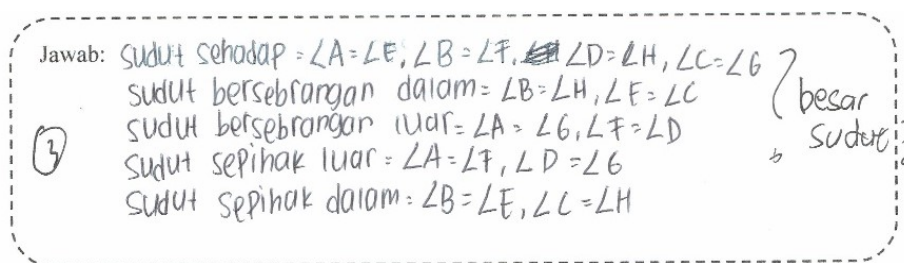 Jawab: Sudut sehadap = ∠A=∠E, ∠B=∠F, ∠D=∠H, ∠C=∠G
sudut bersebrangan dalam= ∠B=∠H, ∠E=∠C
sudut bersebrangan luar= ∠A=∠G, ∠F=∠D
sudut sepihak luar= ∠A=∠F, ∠D=∠G
sudut sepihak dalam= ∠B=∠E, ∠C=∠H
besar
sudut
3